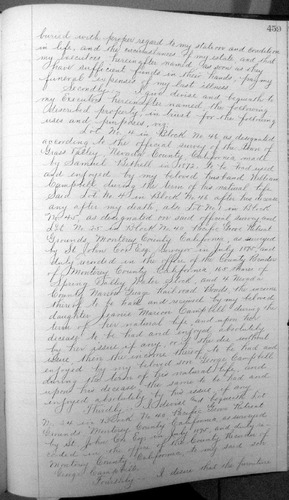 459
buried with proper regard to my station and condition
in life, and the circumstances of my estate and that
my Executors hereinafter named as soon as they
have sufficient funds in their hands, pay my
funeral expenses & my last illness
Secondly. I give devise and bequeath to
my Executors hereinafter named the following
described property in trust for the following
uses and purposes,
Lot No. 4 in Block No 46 as designated
according to the official survey of the Town of
Grass Valley, Nevada County California made
by Samuel Bethell in 1872. To be had used
and enjoyed by my beloved husband William
Campbell during the term of his natural life
Said Lot No 4 in Block No 46 after his
any after my death also Lot No in Block
No 45, as designated on said official survey and
Lot No 25 in Block No 40 Pacific Grove Retreat
Grounds Monterey County California, as surveyed
by St. John Cox Esq. Surveyor in July 1875 and
duly recorded in the office of the County Recorder
of Monterey County California
Spring Valley Water Stock, and 4 Nevada
County Narrow Gauge Railroad Bonds the income
thereof to be had and enjoyed by my beloved
daughter Marion Campbell during the
term of her natural life and upon her
decease to be had and enjoyed absolutely
by her issue if any, or if she dies without
issue then the income thereof to be had and
enjoyed by my beloved son George Campbell
during the term of his natural life, and
upon his decease the same to be had and
enjoyed absolutely by his issue if any
Thirdly. I give devise and bequeath Lot
No 24 in Block No 40 Pacific Grove Retreat
Grounds Monterey County California as surveyed
by St. John Cox Esq in July 1875, and duly re-
corded in the office of the County Recorder of
Monterey County California, to my said son
George Campbell
Fourthly. I desire that the furniture